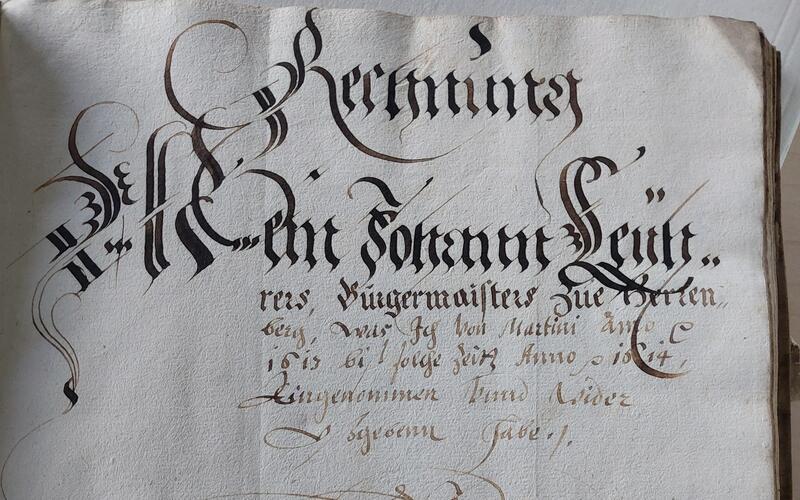 Rechnung
Mein Johann Leüh..
rers, Bürgermaisters Zue Herren=
berg, was Ich Von Martini Anno
1613 biß solche Zeitt Anno 1614,
Eingenommen Vnnd Wider
Außgebenn habe.